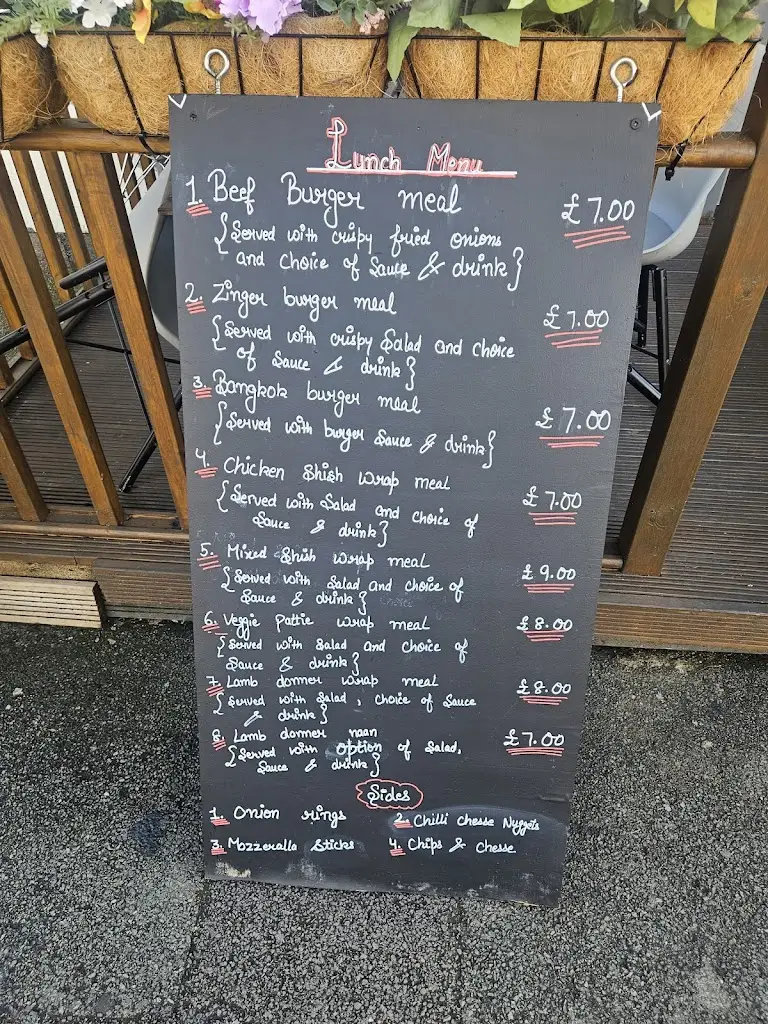 Lunch Menu
1. Beef Burger meal £7.00
{Served with crispy fried onions
and choice of Sauce & drink}
2. Zinger burger meal £7.00
{Served with crispy Salad and choice
of Sauce & drink}
3. Bangkok burger meal £7.00
{Served with burger Sauce & drink}
4. Chicken Shish wrap meal £7.00
{Served with Salad and choice of
Sauce & drink}
5. Mixed Shish wrap meal £9.00
{Served with Salad and choice of
Sauce & drink}
6. Veggie Pattie wrap meal £8.00
{Served with Salad and choice of
Sauce & drink}
7. Lamb donner wrap meal £8.00
{Served with Salad, choice of Sauce
& drink}
8. Lamb donner naan £7.00
{Served with option of Salad,
Sauce & drink}
Sides
1. Onion rings 2. Chilli chesse Nuggets
3. Mozzeralla Sticks 4. Chips & chesse